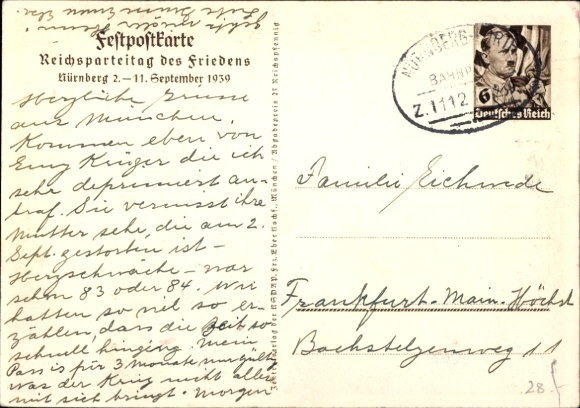 Festpostkarte
Reichsparteitag des Friedens
Nürnberg 2.–11. September 1939
Herzliche Grüsse
aus München.
Kommen eben von
Emy Krüger die ich
sehr deprimiert an-
traf. Sie vermisst ihre
Mutter sehr, die am 2.
Sept. gestorben ist –
Herzschwäche – war
schon 83 oder 84. Wir
hatten so viel so er-
zählen, dass die Zeit so
schnell hinging. Mein
Pass is für 3 Monate nur gültig
was der Krieg nicht alles
mit sich bringt. Morgen
Zentralverlag der NSDAP. Frz. Eher Nachf., München / Abgabepreis 25 Reichspfennig
NÜRNBERG
BAHNP
Z.1112
6
Deutsches Reich
Familie Eichwede
Frankfurt-Main-Höchst
Bachstelzenweg 11
28.-